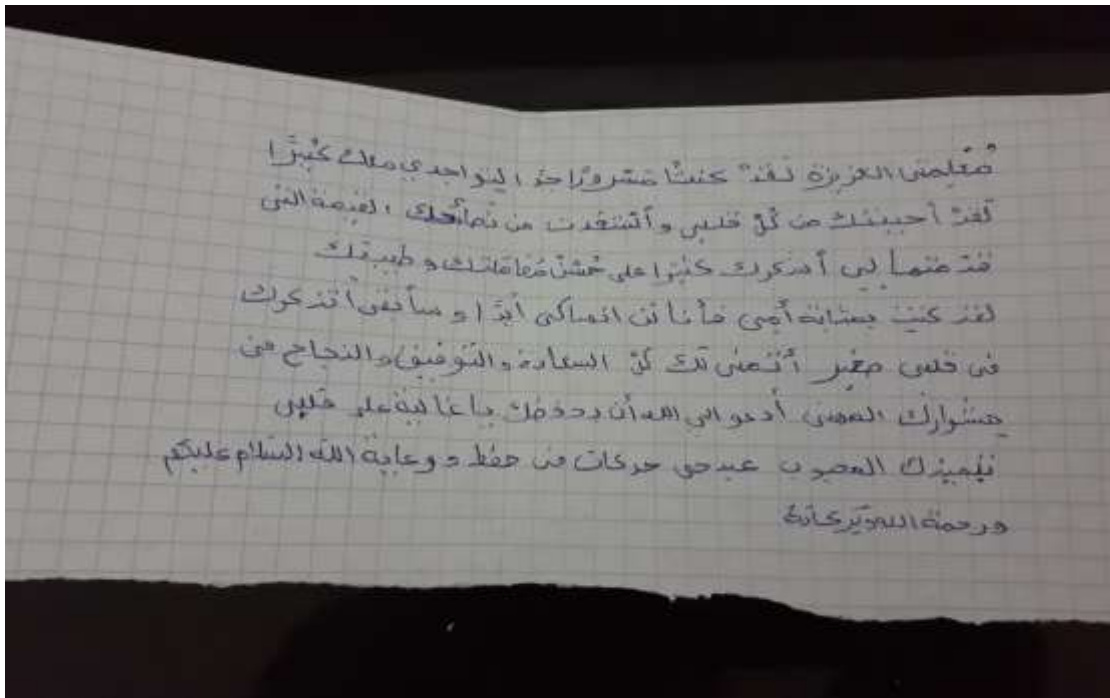 مُعَلِمتي العزيزة لَقَدْ كنتُ مَسْرورًا جدًا لتواجدي معك كَثيرًا
لَقَدْ أحببتك من كُلّ قلبي و أستفدت من نصائحك القيمة التي
قدمتها لي أشكرك كثيرا على حُسْنْ مُعَاملتك و طيبتك
لقد كنت بمثابة أمي فأنا لن انساكي أبدًا و سأبقى أتذكرك
في قلبي صغير أتمنى لك كلّ السعادة و التوفيق و النجاح في
مشوارك المهني أدعو الي الله أن يحفظك يا غالية على قلبي
تلميذك المحبوب عبدحق حركات في حفظ و رعاية الله السلام عليكم
و رحمة الله وَبَركاتهُ